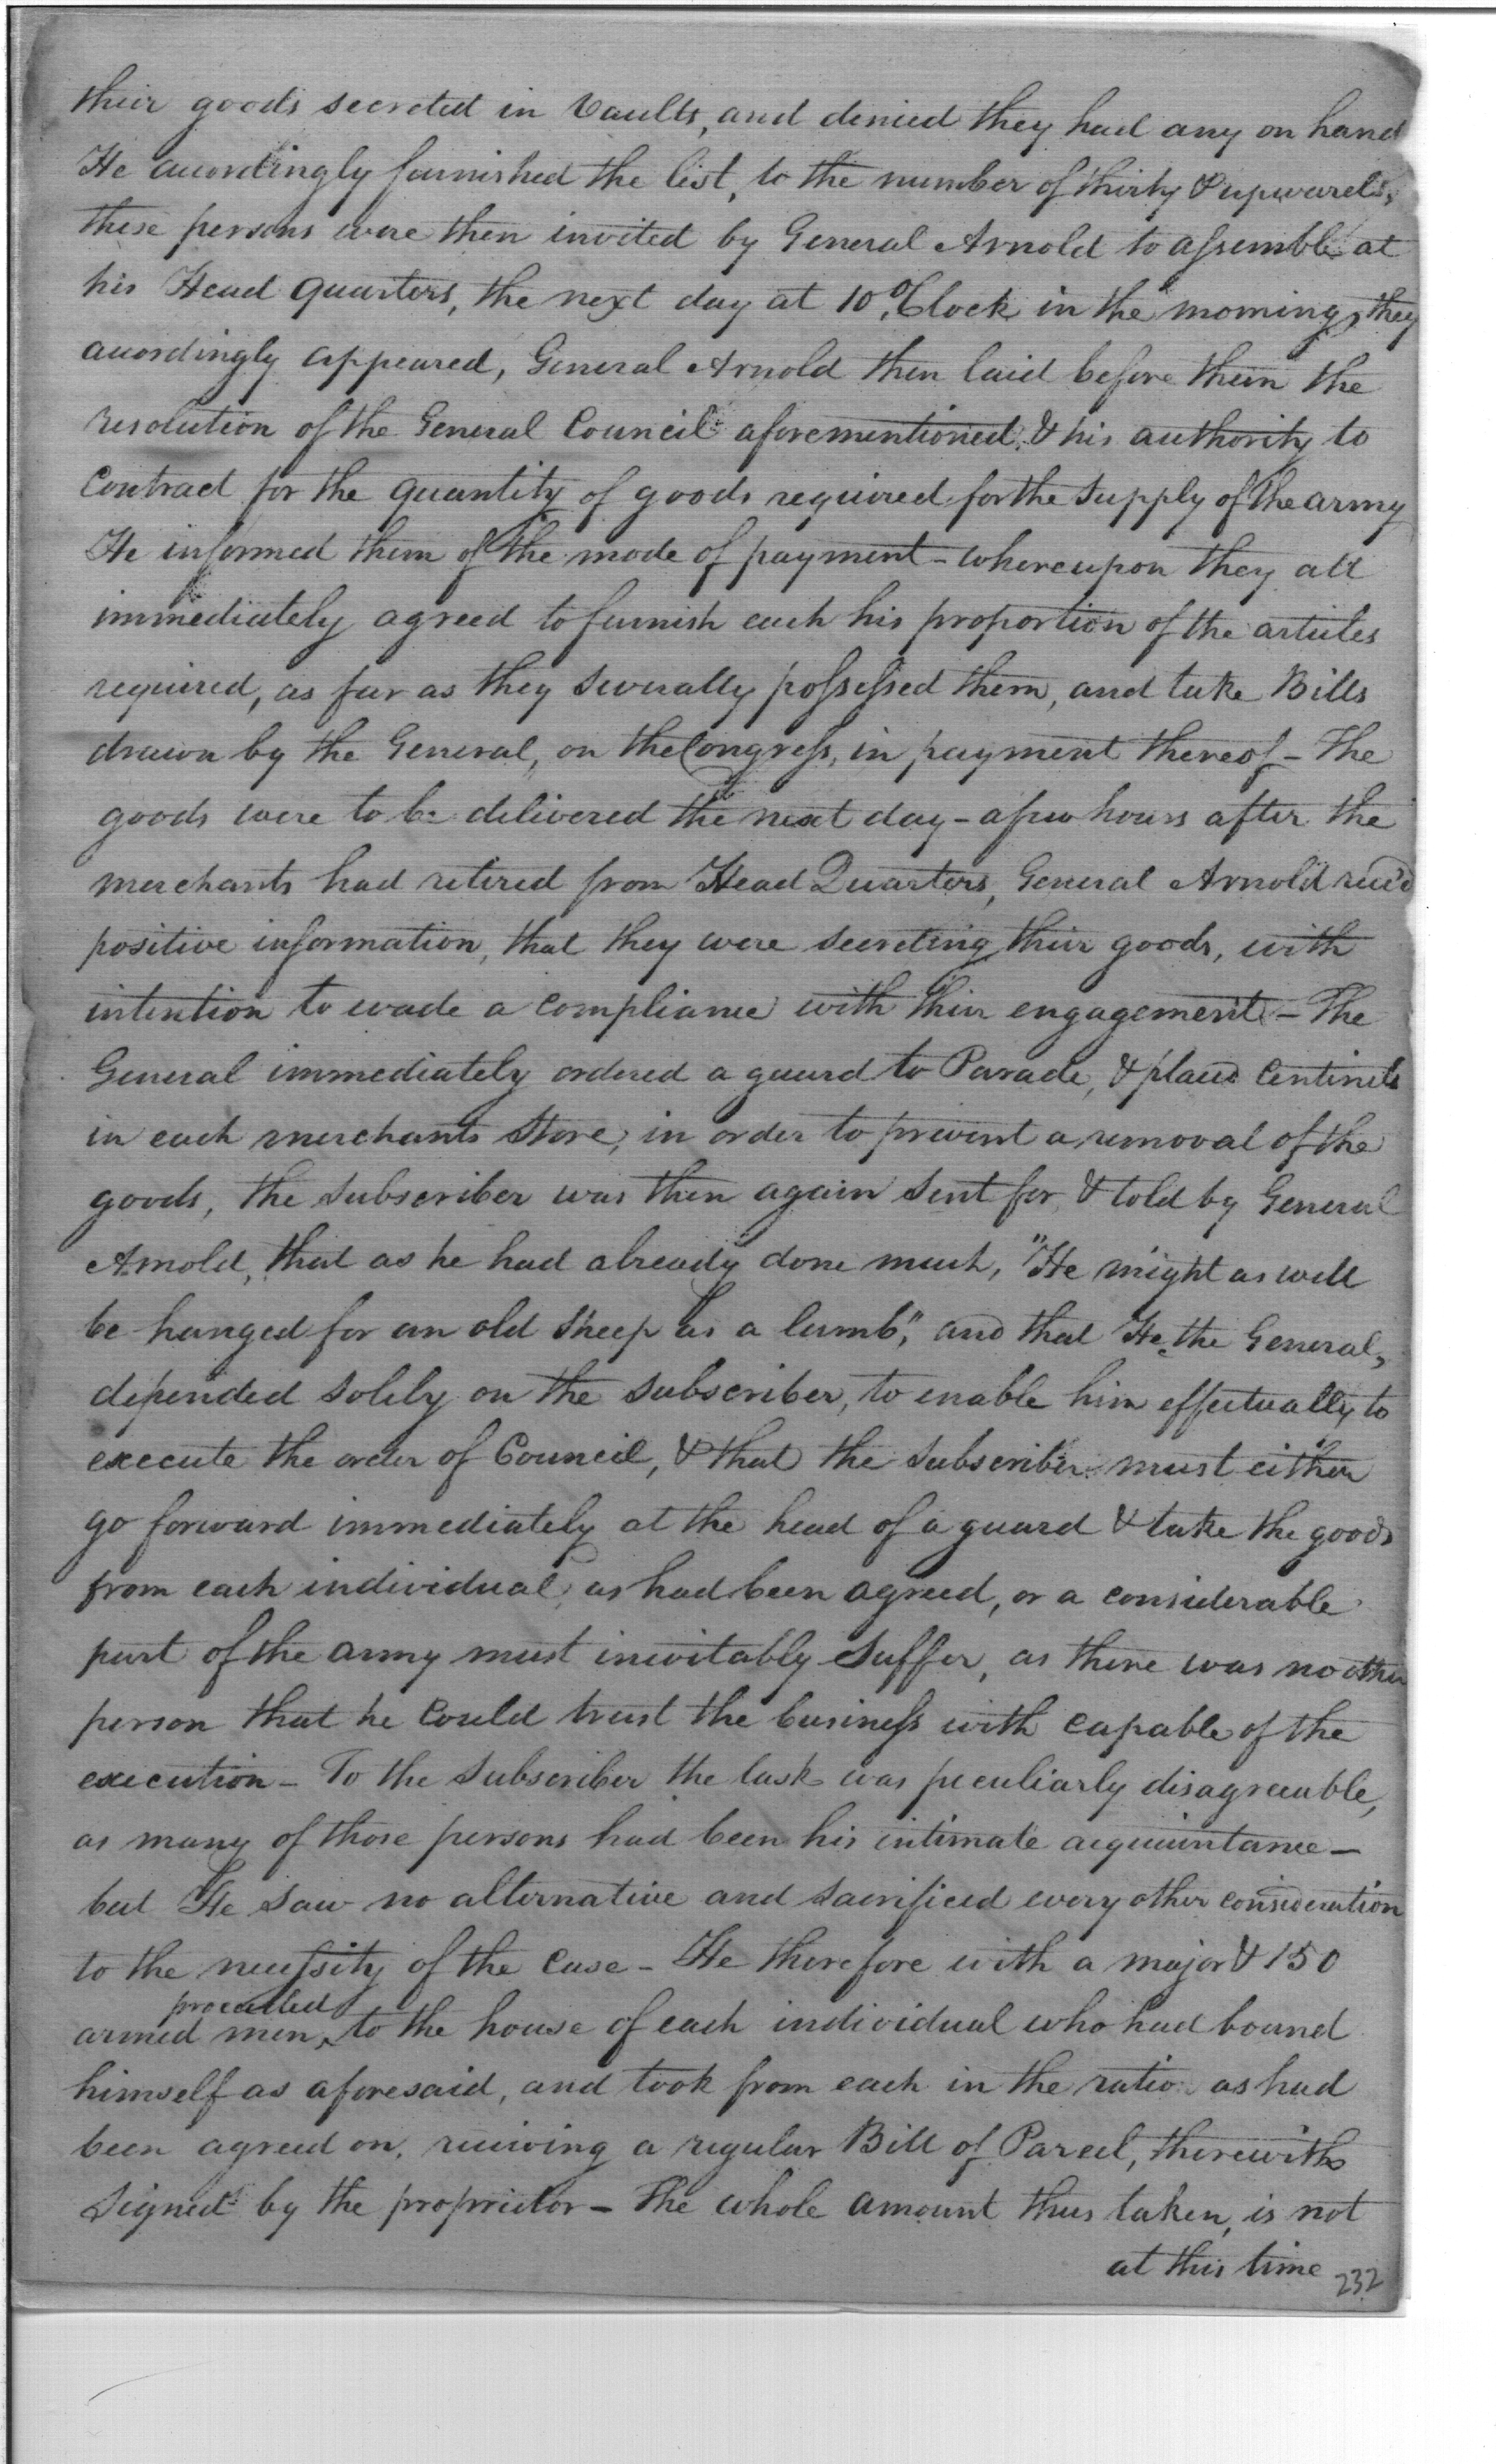 their goods secreted in Vaults, and denied they had any on hand
He accordingly furnished the list, to the number of thirty & upwards,
these persons were then invited by General Arnold to assemble at
his Head quarters, the next day at 10 O'Clock in the morning, they
accordingly appeared, General Arnold then laid before them the
resolution of the General Council aforementioned, & his authority to
Contract for the quantity of goods required for the supply of the army
He informed them of the mode of payment - whereupon they all
immediately agreed to furnish each his proportion of the articles
required, as far as they severally possessed them, and take Bills
drawn by the General, on the Congress, in payment thereof - The
goods were to be delivered the next day - a few hours after the
merchants had retired from Head Quarters, General Arnold rec'd
positive information, that they were secreting their goods, with
intention to evade a compliance with their engagement - The
General immediately ordered a guard to Parade, & place Centinels
in each merchants Store, in order to prevent a removal of the
goods, the subscriber was then again sent for, & told by General
Arnold, that as he had already done much, "He might as well
be hanged for an old sheep as a lamb", and that He, the General,
depended solely on the subscriber, to enable him effectually to
execute the order of Council, & that the subscriber must either
go forward immediately at the head of a guard & take the goods
from each individual, as had been agreed, or a considerable
part of the army must inevitably suffer, as there was no other
person that he Could trust the business with capable of the
execution - To the subscriber the task was peculiarly disagreeable,
as many of those persons had been his intimate acquaintance -
but He saw no alternative and sacrificed every other consideration
to the necessity of the Case - He therefore with a major & 150
proceeded
armed men, to the house of each individual who had bound
himself as aforesaid, and took from each in the ratio as had
been agreed on, receiving a regular Bill of Parcel, therewith
signed by the proprietor - The whole amount thus taken, is not
at this time
232